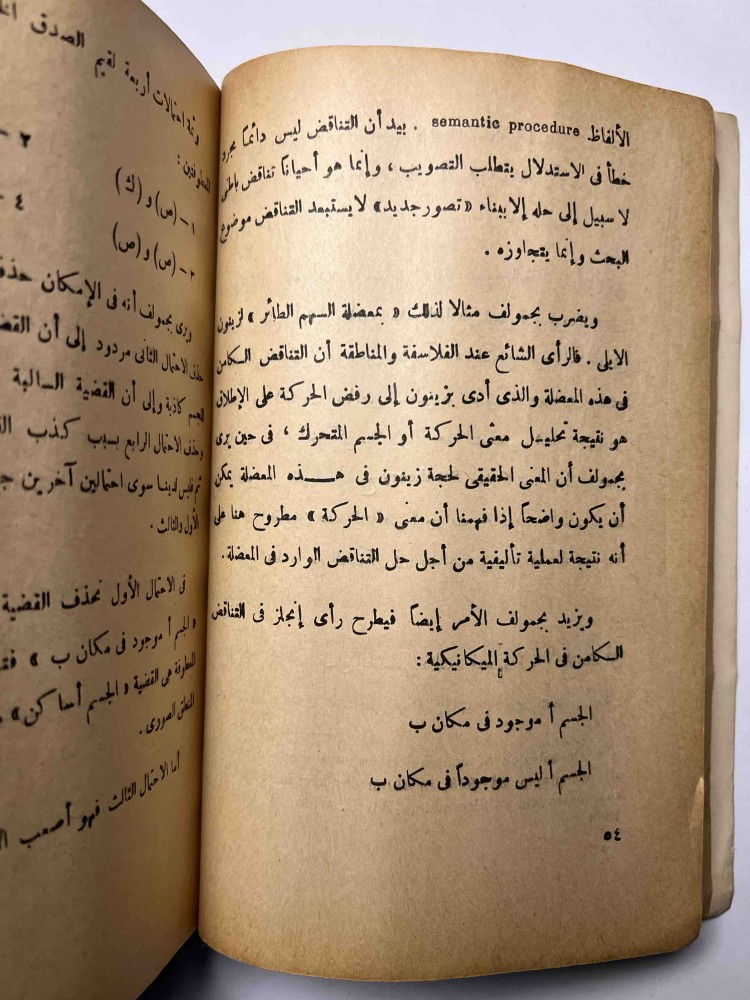 الألفاظ. semantic procedure . بيد أن التناقض ليس دائماً مجرد
خطأ فى الاستدلال يتطلب التصويب ، وإنما هو أحياناً تناقض باطنى
لا سبيل إلى حله إلا ببناء «تصور جديد» لا يستبعد التناقض موضوع
البحث وإنما يتجاوزه .
ويضرب بجمولف مثالا لذلك « بمعضلة السهم الطائر » لزينون
الايلى . فالرأى الشائع عند الفلاسفة والمناطقة أن التناقض الكامن
فى هذه المعضلة والذى أدى بزينون إلى رفض الحركة على الإطلاق
هو نتيجة تحليل معنى الحركة أو الجسم المتحرك ، فى حين يرى
بجمولف أن المعنى الحقيقى لحجة زينون فى هذه المعضلة يمكن
أن يكون واضحاً إذا فهمنا أن معنى « الحركة » مطروح هنا على
أنه نتيجة لعملية تأليفية من أجل حل التناقض الوارد فى المعضلة.
ويزيد بجمولف الأمر إيضاً فيطرح رأى إنجلز فى التناقض
الكامن فى الحركة الميكانيكية :
الجسم أ موجود فى مكان ب
الجسم أ ليس موجوداً فى مكان ب
٥٤
وثمة احتمالات أربعة لقيم الصدق
المعطوفتين :
١ – (ص) و (ك) ٢ –
٣ – (ص) و (ص) ٤ –
ويرى بجمولف أنه فى الإمكان حذف
حذف الاحتمال الثانى مردود إلى أن
الجسم كاذبة وإلى أن القضية السالبة
وحذف الاحتمال الرابع بسبب كذب
ثم فليس لدينا سوى احتمالين آخرين
الأول والثالث .
فى الاحتمال الأول نحذف القضية
« الجسم أ موجود فى مكان ب »
المعطوفة هى القضية « الجسم أ ساكن »
المنطق الصورى .
أما الاحتمال الثالث فهو أصعب